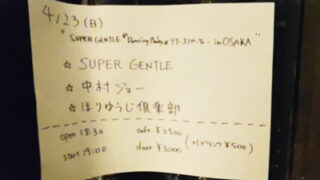 4/23(日)
"SUPER GENTLE "Dancing Baby" ツアースケジュール in OSAKA"
☆ SUPER GENTLE
☆ 中村ジョー
☆ ほりゅうじ倶楽部
open 18:30 adv ¥2500
start 19:00 door ¥3000 (+1ドリンク ¥500)